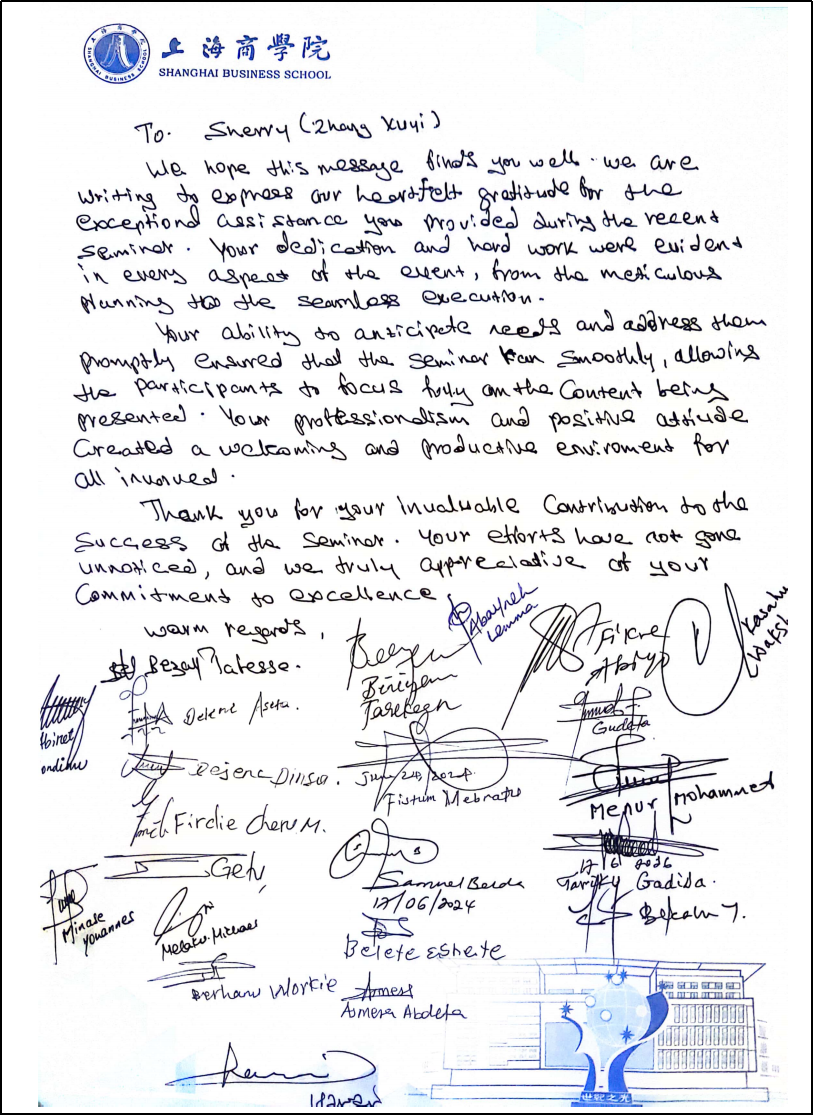 上海商學院
SHANGHAI BUSINESS SCHOOL
To. Sherry (Zhang Xuyi)
We hope this message finds you well. we are
writing to express our heartfelt gratitude for the
exceptional assistance you provided during the recent
seminar. Your dedication and hard work were evident
in every aspect of the event, from the meticulous
planning to the seamless execution.
Your ability to anticipate needs and address them
promptly ensured that the seminar ran smoothly, allowing
the participants to focus fully on the content being
presented. Your professionalism and positive attitude
created a welcoming and productive enviroment for
all involved.
Thank you for your invaluable contribution to the
success of the seminar. Your efforts have not gone
unnoticed, and we truly appreciative of your
commitment to excellence
warm regards,
Abayneh
Lemma
Fikre
Kasahu
Bezay Tatesse.
Biniyam
Tarekegn
Gudeta
Dejene Dinsa.
June 24/2024
Fistum Mebratu
Menur Mohammed
Firdie Cheru M.
Getu
Samuel
17/06/2024
Gadisa.
Minase
Youannes
Melaku Michael
Belete Eshete
Berhanu Workie
Asmera Abdeta
世紀之光